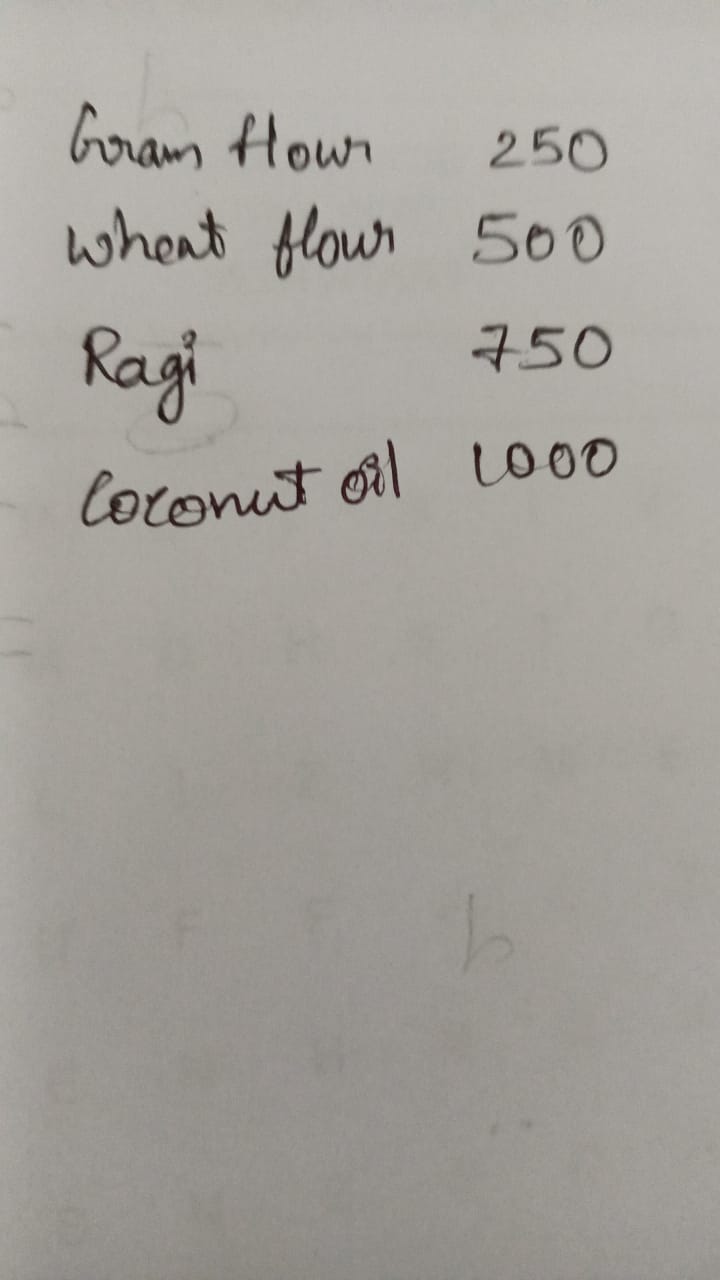 Gram flour 250
Wheat flour 500
Ragi 750
Coconut oil 1000
b